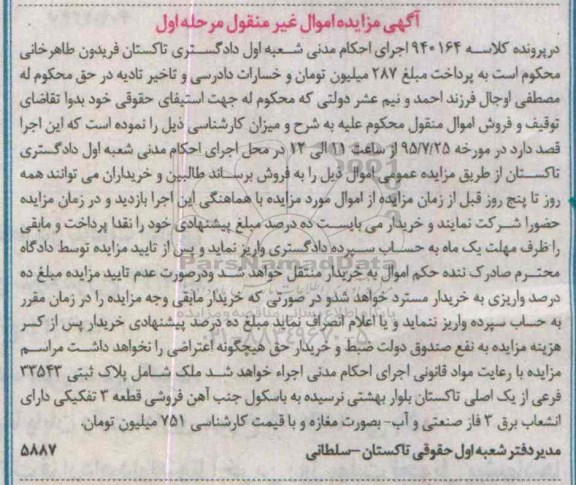 آگهی مزایده اموال غیر منقول مرحله اول
درپرونده کلاسه ۹۴۰۱۶۴ اجرای احکام مدنی شعبه اول دادگستری تاکستان فریدون طاهرخانی
محکوم است به پرداخت مبلغ ۲۸۷ میلیون تومان و خسارات دادرسی و تاخیر تادیه در حق محکوم له
مصطفی اوجال فرزند احمد و نیم عشر دولتی که محکوم له جهت استیفای حقوقی خود بدوا تقاضای
توقیف و فروش اموال منقول محکوم علیه به شرح و میزان کارشناسی ذیل را نموده است که این اجرا
قصد دارد در مورخه ۹۵/۷/۲۵ از ساعت ۱۱ الی ۱۲ در محل اجرای احکام مدنی شعبه اول دادگستری
تاکستان از طریق مزایده عمومی اموال ذیل را به فروش برساند طالبین و خریداران می توانند همه
روز تا پنج روز قبل از زمان مزایده از اموال مورد مزایده با هماهنگی این اجرا بازدید و در زمان مزایده
حضورا شرکت نمایند و خریدار می بایست ده درصد مبلغ پیشنهادی خود را نقدا پرداخت و مابقی
را ظرف مهلت یک ماه به حساب سپرده دادگستری واریز نماید و پس از تایید مزایده توسط دادگاه
محترم صادرک ننده حکم اموال به خریدار منتقل خواهد شد ودرصورت عدم تایید مزایده مبلغ ده
درصد واریزی به خریدار مسترد خواهد شدو در صورتی که خریدار مابقی وجه مزایده را در زمان مقرر
به حساب سپرده واریز ننماید و یا اعلام انصراف نماید مبلغ ده درصد پیشنهادی خریدار پس از کسر
هزینه مزایده به نفع صندوق دولت ضبط و خریدار حق هیچگونه اعتراضی را نخواهد داشت مراسم
مزایده با رعایت مواد قانونی اجرای احکام مدنی اجراء خواهد شد ملک شامل پلاک ثبتی ۳۳۵۴۳
فرعی از یک اصلی تاکستان بلوار بهشتی نرسیده به باسکول جنب آهن فروشی قطعه ۳ تفکیکی دارای
انشعاب برق ۳ فاز صنعتی و آب- بصورت مغازه و با قیمت کارشناسی ۷۵۱ میلیون تومان.
مدیردفتر شعبه اول حقوقی تاکستان –سلطانی ۵۸۸۷
ParsNamadData